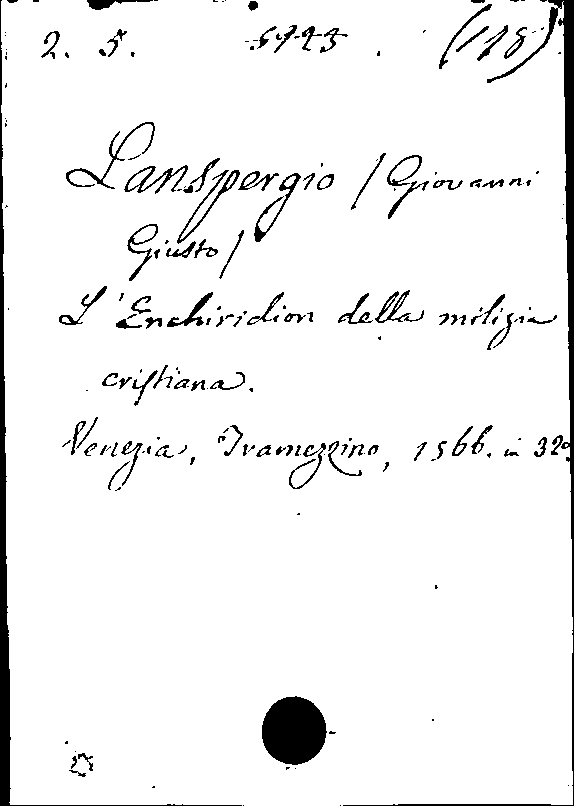 2. 5. (118)
Lanspergio / Giovanni
Giusto /
L'Enchiridion della milizia
cristiana.
Venezia, Tramezzino, 1566. in 32º